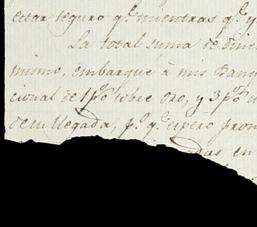 estar seguro q.e mientras q.e y
La total suma de dine
mismo, embarqué á mis Banq
cional de 1 p% sobre Oro, y 3 p% 
de su llegada, p.o q.e espero pron
en